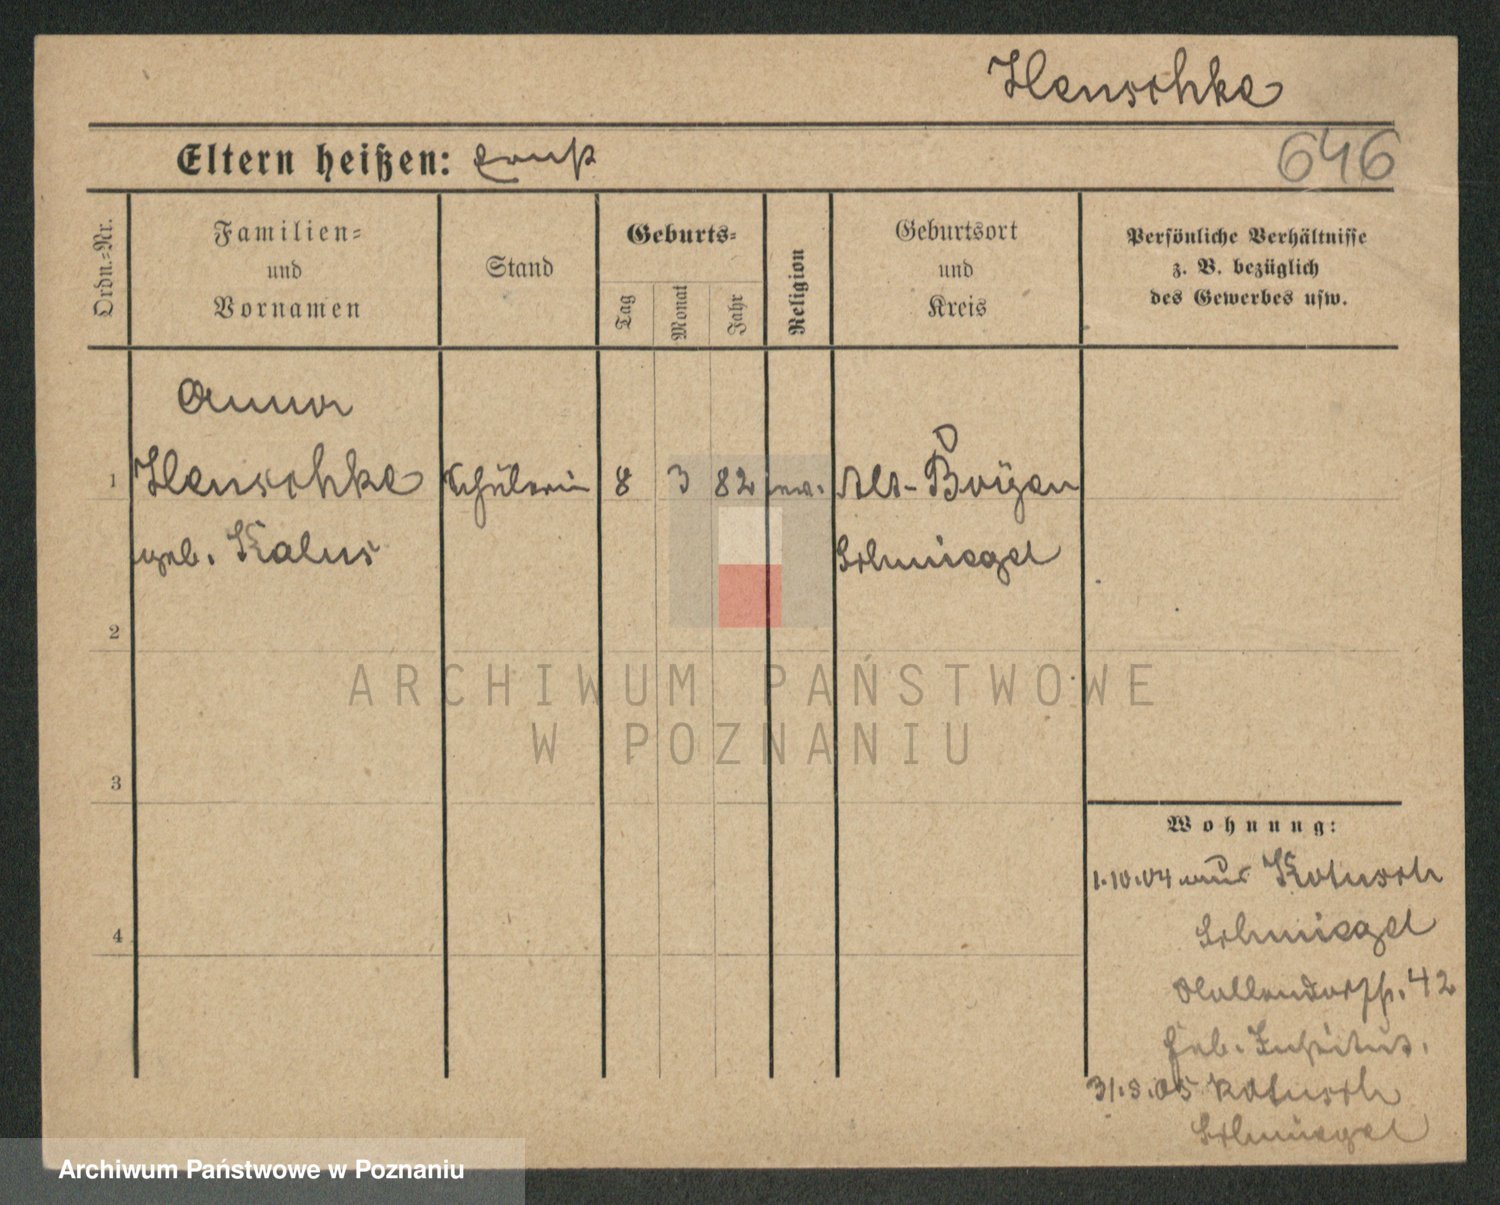 Henschke
Eltern heißen: Ernst
646
Ordn.-Nr.
Familien-
und
Vornamen
Stand
Geburts-
Tag
Monat
Jahr
Religion
Geburtsort
und
Kreis
Persönliche Verhältnisse
z. B. bezüglich
des Gewerbes usw.
Anna
1 Henschke Schülerin 8 3 82 Alt-Boÿen
geb. Kalus Schmiegel
2
ARCHIWUM PAŃSTWOWE
W POZNANIU
3
Wohnung:
1.10.04 aus Kotusch
4 Schmiegel
42
Heb. Institut.
31.3.05 Kotusch
Schmiegel
Archiwum Państwowe w Poznaniu